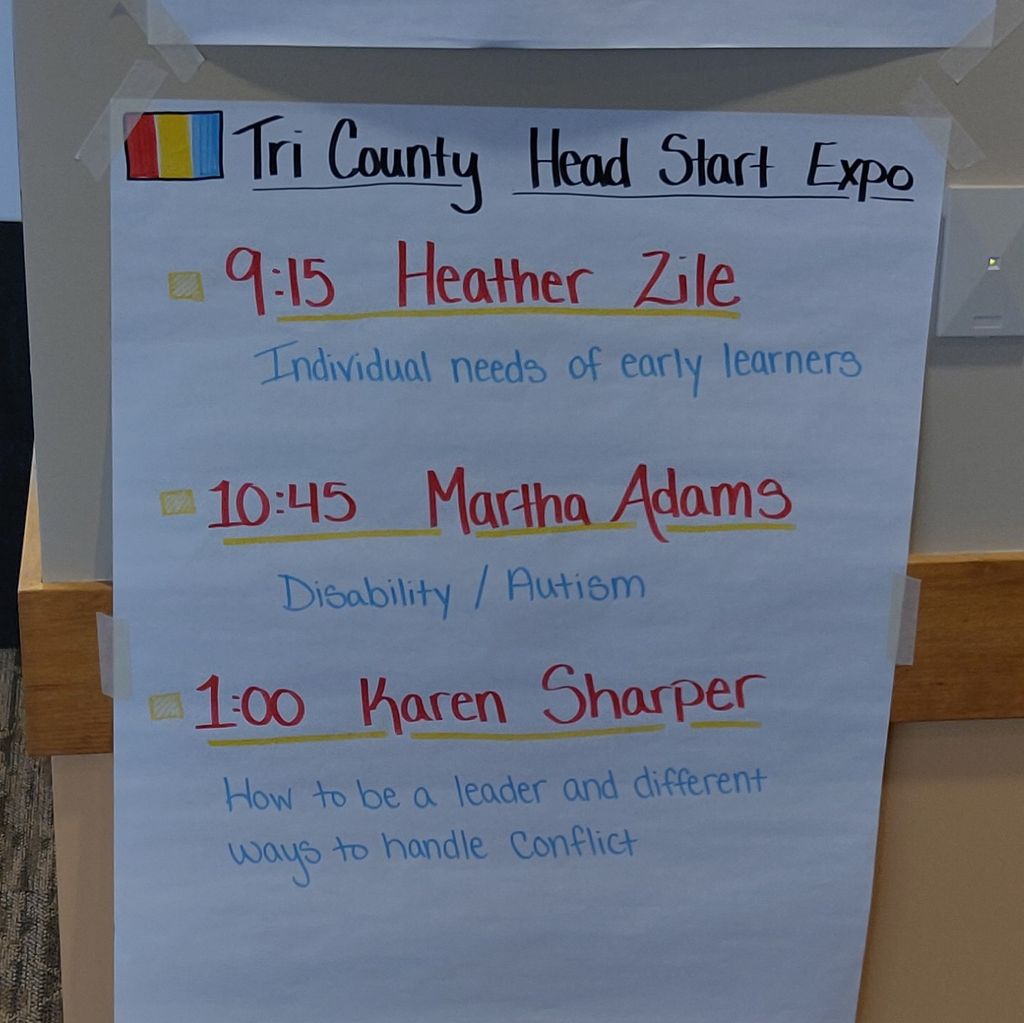 Tri County Head Start Expo
9:15 Heather Zile
Individual needs of early learners
10:45 Martha Adams
Disability / Autism
1:00 Karen Sharper
How to be a leader and different
ways to handle Conflict